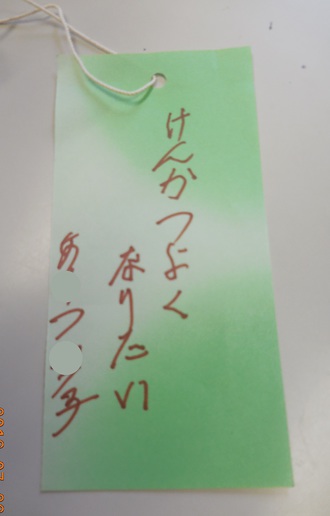 けんかつよく
なりたい